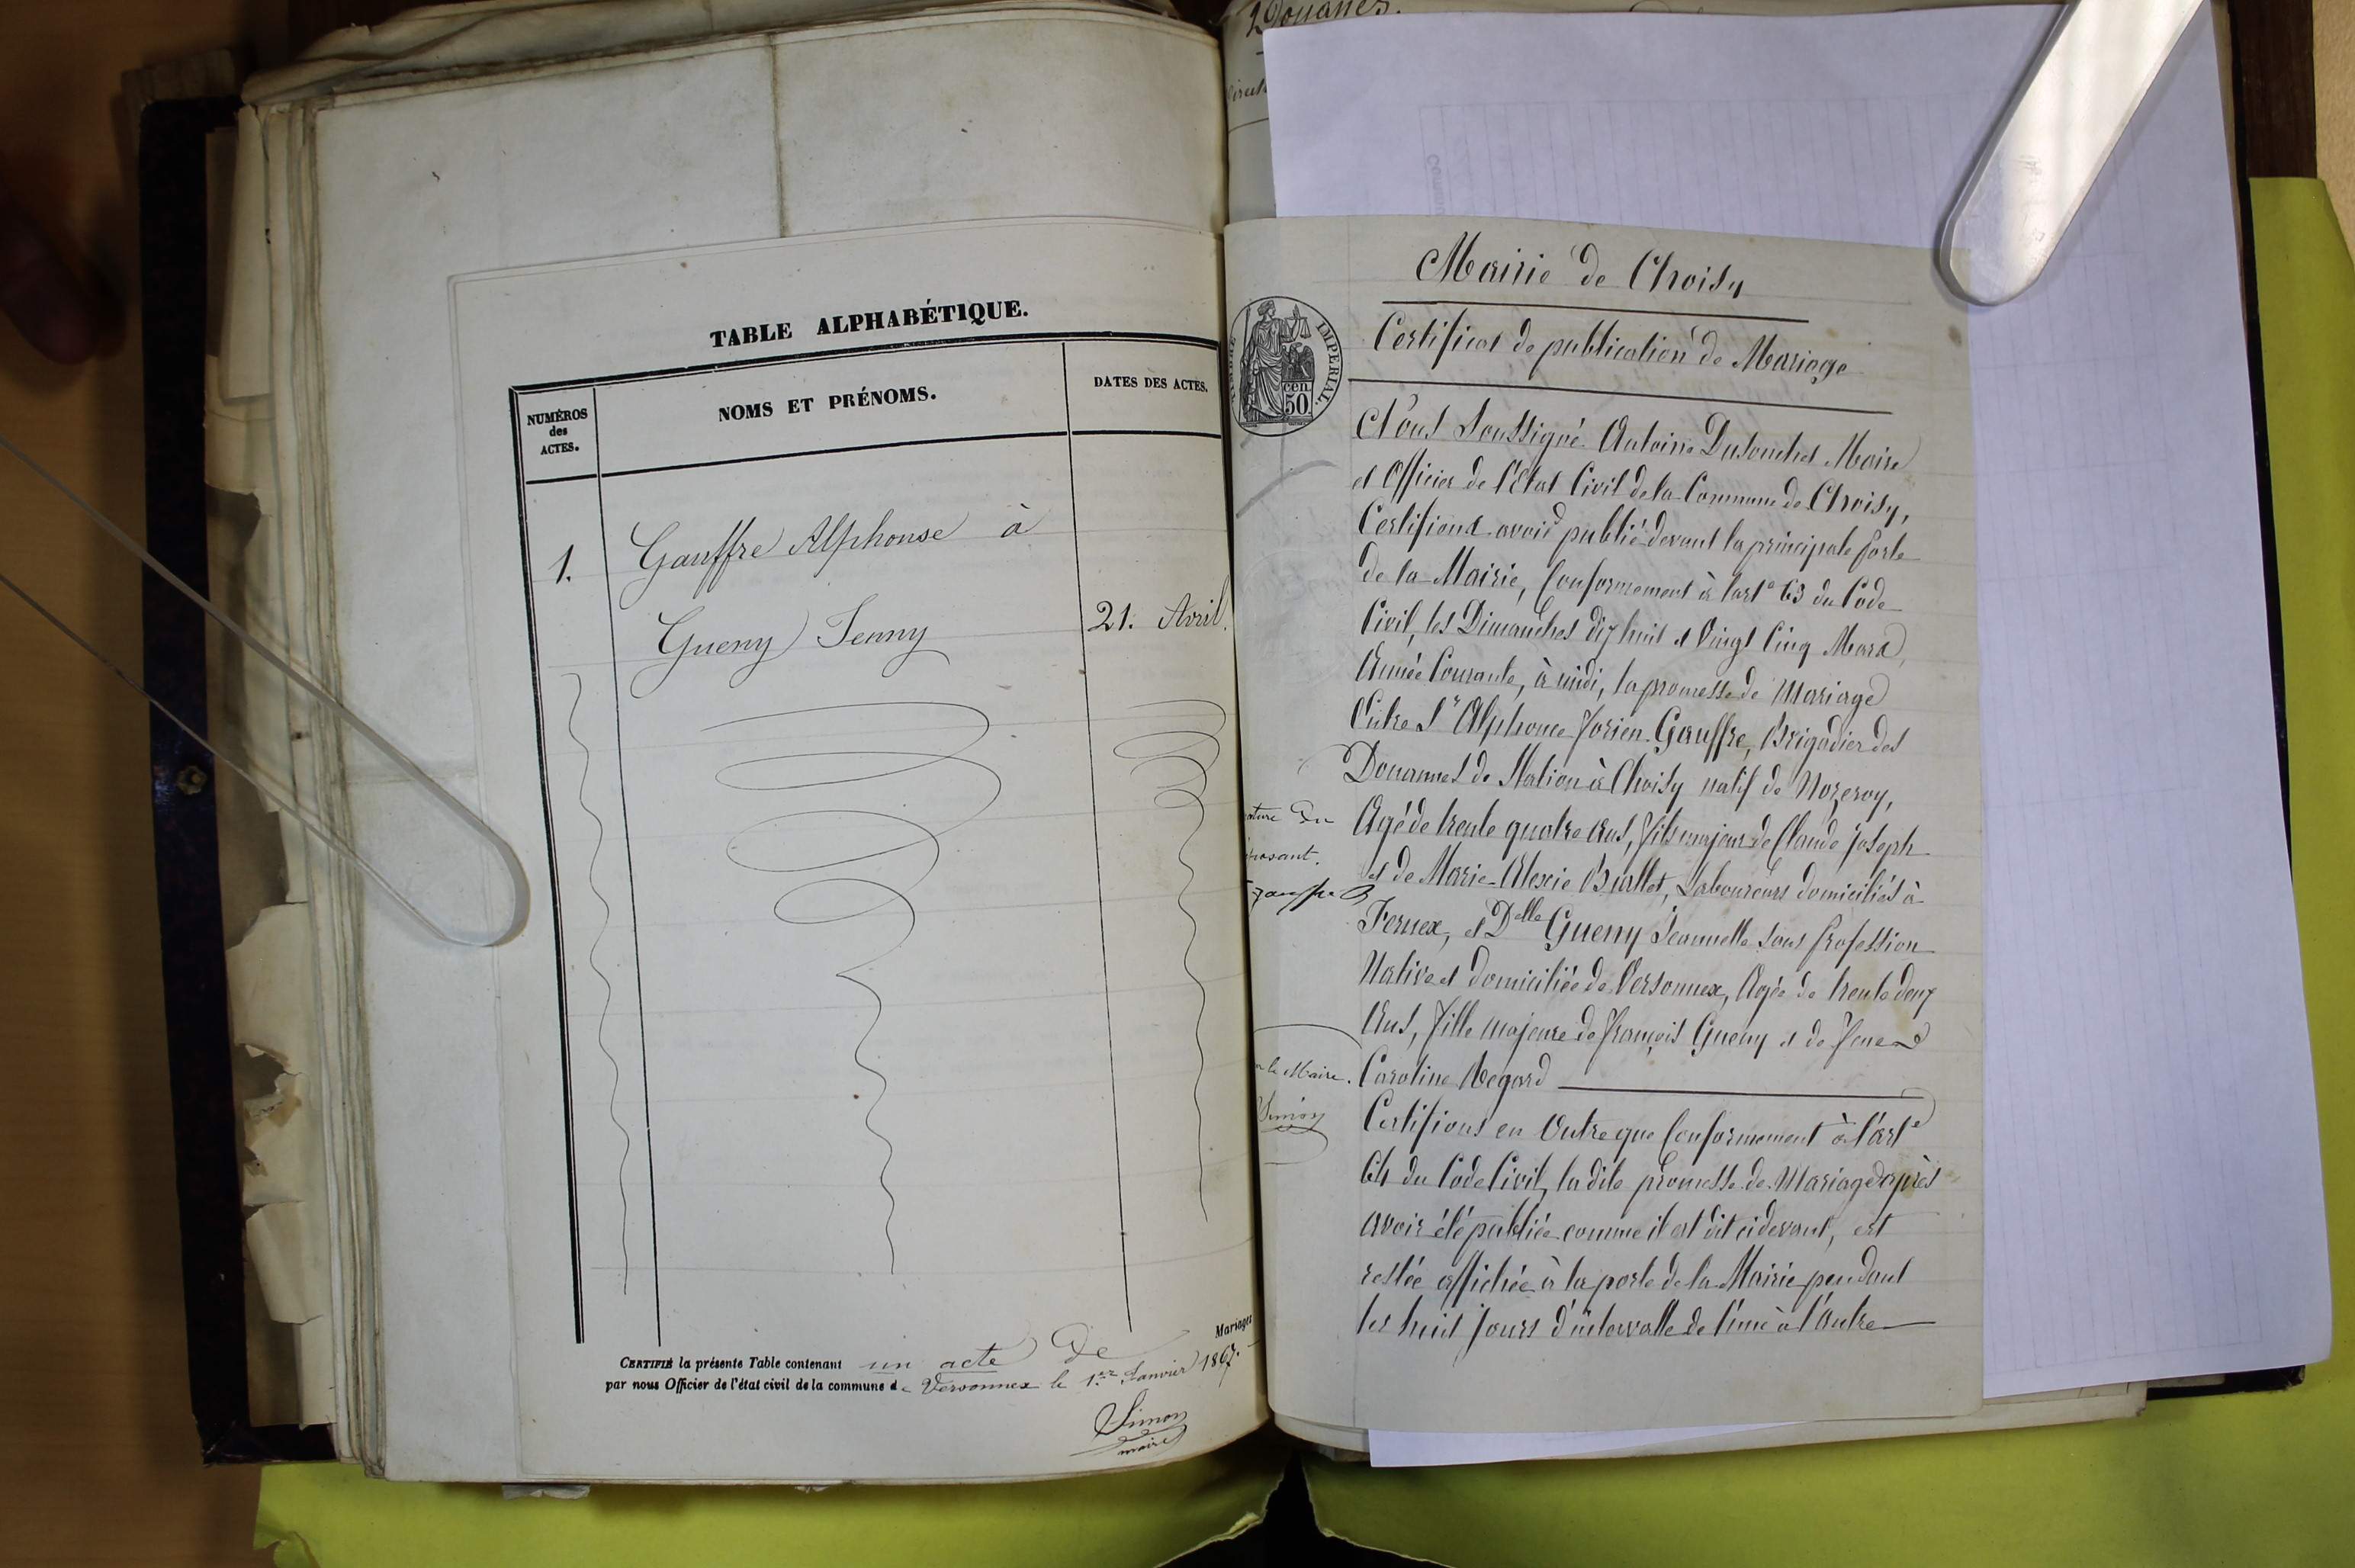 TABLE ALPHABÉTIQUE.
NUMÉROS
des
ACTES.
NOMS ET PRÉNOMS.
DATES DES ACTES.
1.
Gauffre Alphonse à
Gueny Jenny
21. Avril.
Mariages
CERTIFIÉ la présente Table contenant un acte de
par nous Officier de l'état civil de la commune de Versonnex le 1er Janvier 1867.
Simon
maire
2 Douanes.
Mairie de Choisy
Certificat de publication de Mariage
IMPERIAL.
cen.
50
Nous Soussigné Antoine Maire
et Officier de l'Etat Civil de la Commune de Choisy,
Certifions avoir publié devant la principale porte
de la Mairie, Conformement à l'arte 63 du Code
Civil, les Dimanches dix huit et Vingt Cinq Mars,
Année Courante, à midi, la promesse de Mariage
Entre Sr Alphonce Gauffre, Brigadier des
Douannes de Station à Choisy natif de Nozeroy,
Agé de trente quatre Ans, fils majeur de Claude Joseph
et de Marie-Alexie Laboureurs domiciliés à
Fernex, et Delle Gueny Jeannette sans profession
Native et domiciliée de Versonnex, Agée de trente deux
Ans, fille majeure de François Gueny et de
Caroline Regard
Certifions en Outre que Conformement à l'arte
64 du Code Civil, la dite promesse de Mariage après
avoir été publiée comme il est dit cidevant, est
restée affichée à la porte de la Mairie pendant
les huit Jours d'intervalle de l'une à l'Autre
le Maire.
Simon